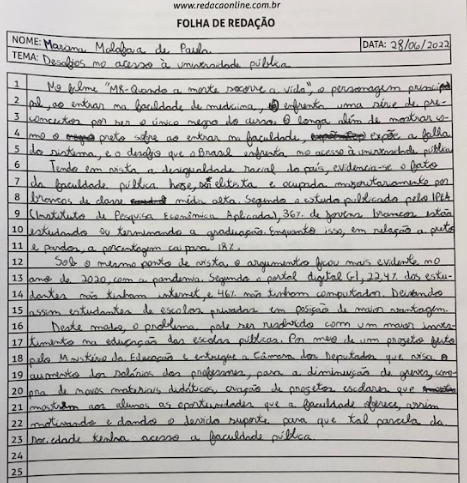 www.redacaonline.com.br
FOLHA DE REDAÇÃO
NOME: Mariana Malafaia de Paula DATA: 28/06/2022
TEMA: Desafios no acesso à universidade pública
1 No filme "M8-Quando a morte socorre a vida", o personagem princi
2 pal, ao entrar na faculdade de medicina, enfrenta uma série de pre-
3 conceitos por ser o único negro do curso. O longa além de mostrar co-
4 mo o preto sofre ao entrar na faculdade, expõe a falha
5 do sistema, e o desafio que o Brasil enfrenta no acesso à universidade pública
6 Tendo em vista a desigualdade racial do país, evidencia-se o fato
7 da faculdade pública hoje, ser elitista e ocupada majoritariamente por
8 brancos de classe média alta. Segundo o estudo publicado pelo IPEA
9 (Instituto de Pesquisa Econômica Aplicada), 36% de jovens brancos estão
10 estudando ou terminando a graduação. Enquanto isso, em relação a preto
11 e pardos, a porcentagem cai para 18%.
12 Sob o mesmo ponto de vista, o argumento ficou mais evidente no
13 ano de 2020, com a pandemia. Segundo o portal digital G1, 22,4% dos estu-
14 dantes não tinham internet, e 46% não tinham computador. Deixando
15 assim estudantes de escolas privadas em posição de maior vantagem.
16 Deste modo, o problema pode ser resolvido com um maior inves-
17 timento na educação das escolas públicas. Por meio de um projeto feito
18 pelo Ministério da Educação e entregue a Câmara dos Deputados que visa o
19 aumento dos salários dos professores, para a diminuição de greves, com-
20 pra de novos materiais didáticos, criação de projetos escolares que
21 mostrem aos alunos as oportunidades que a faculdade oferece, assim
22 motivando e dando o devido suporte para que tal parcela da
23 sociedade tenha acesso a faculdade pública.
24
25